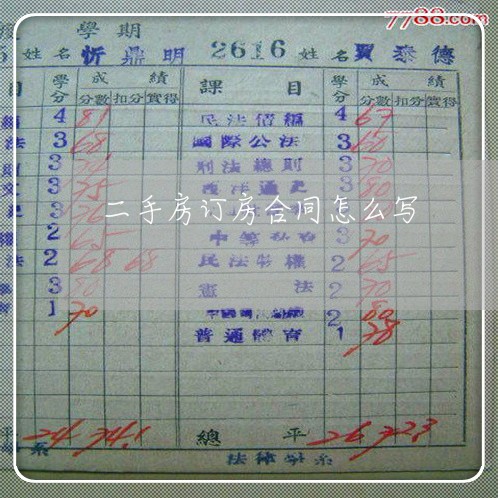 7788.com
學期
姓名 忻鼎明 2616 姓名 賈泰德
目 學分 成績 課目 學分 成績
分數 扣分 實得 分數 扣分 實得
4 81 民法債編 4 67
法 3 68 國際公法 3 60
3 刑法總則 3 70
3 75 政法通史 3 80
3
二手房订房合同怎么写
權 2 65 3 70
法 2 68 68 民法物權 2 65
3 80 憲法 2 70
1 70 2 80
普通體育 1 78
平 24 74.1 總平 26 72.3
系 法律學系